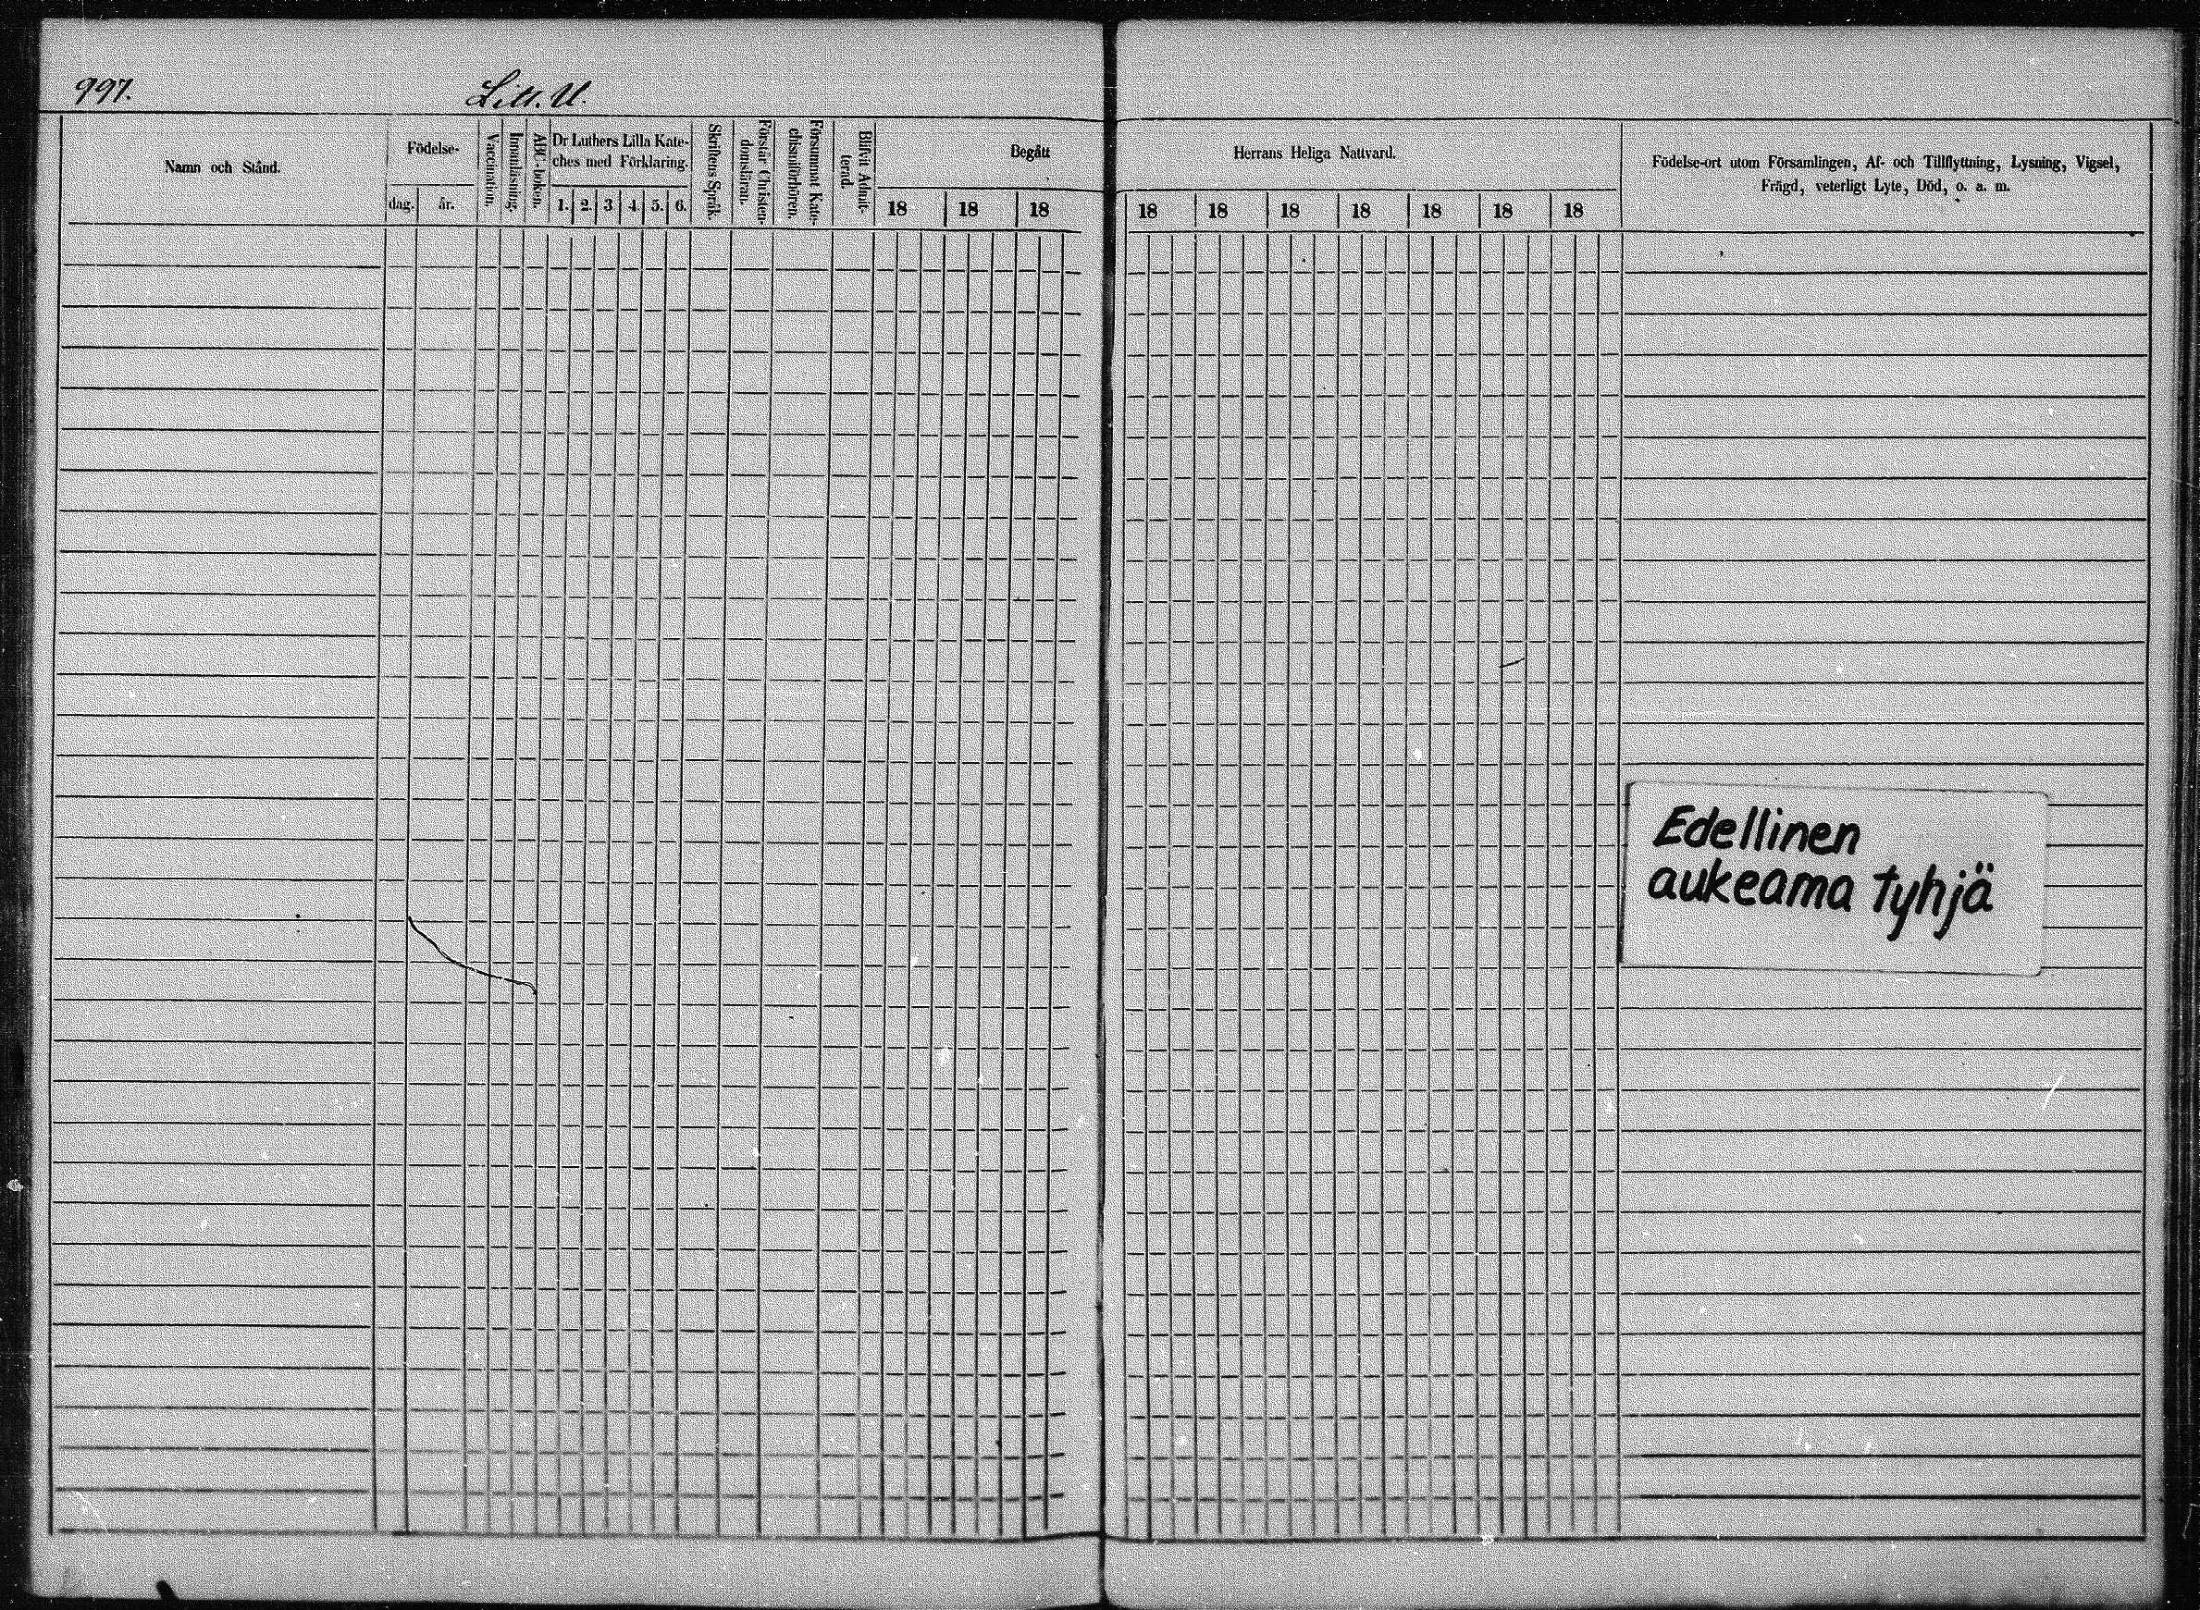 997.
Litt. U.
Namn och Stånd.
Födelse-
dag.
år.
Vaccination.
Innanläsning.
ABC-boken.
Dr Luthers Lilla Kate-
ches med Förklaring.
1. 2. 3 4. 5. 6.
Skriftens Språk.
Förstår Christen-
domsläran.
Försummat Kate-
chismiförhören.
Blifvit Admit-
terad.
Begått
18 18 18
Herrans Heliga Nattvard.
18 18 18 18 18 18 18
Födelse-ort utom Församlingen, Af- och Tillflyttning, Lysning, Vigsel,
Frägd, veterligt Lyte, Död, o. a. m.
Edellinen
aukeama tyhjä